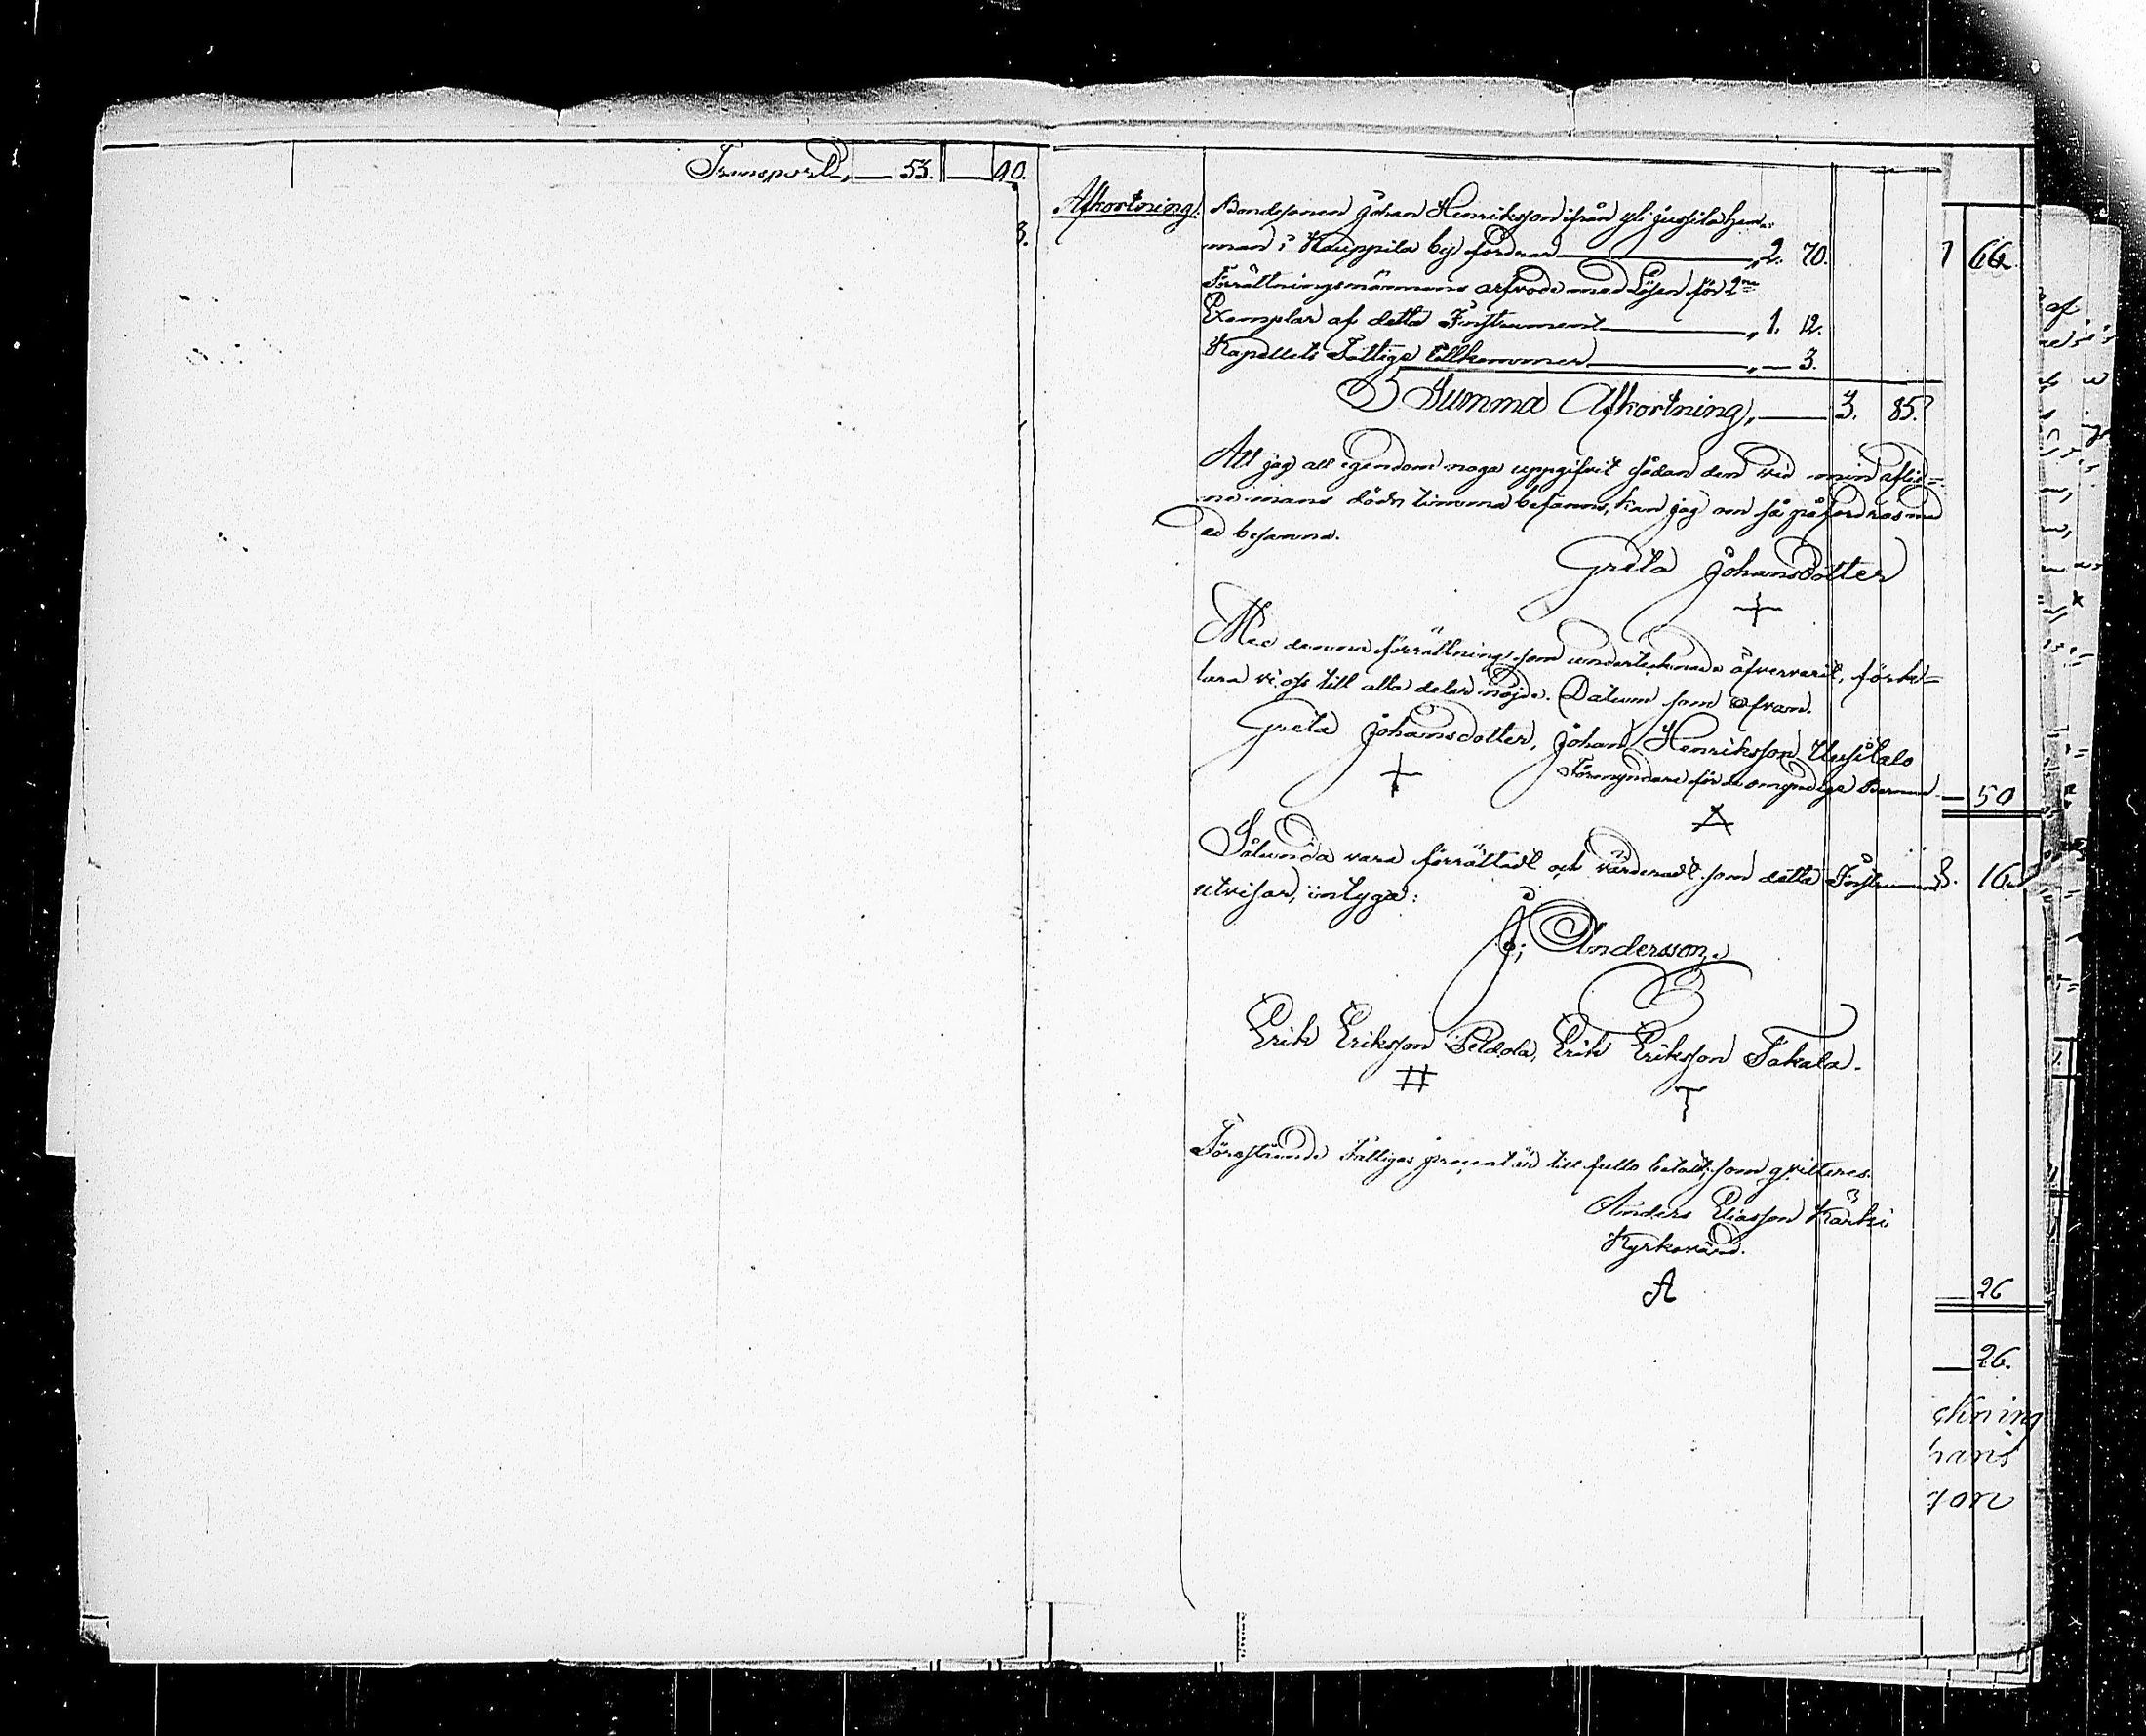 Transport, — 53. — 90.
3.
Afkortning. Bondesonen Johan Henriksson ifrån yli Jussila hem-
man i Kauppila by fordrar — „ 2. 70.
Förrättningsmännens arfvode med Lösen för 2ne
Exemplar af detta Instrument — „ 1. 12.
Kapellets Fattige tillkommer — „ — 3.
Summa Afkortning, — 3. 85.
Att jag all egendom noga uppgifvit sådan den vid min aflid=
ne mans döds timma befanns, kan jag om så påfordras med
ed besanna.
Greta Johansdotter
Med denna förrättning, som undertecknade öfvervarit, förkla=
lara vi oss till alla delar nöjde. Datum som ofvan.
Greta Johansdotter, Johan Henriksson Uusitalo
Förmyndare för de omyndige Barnen
Sålunda vara förrättadt och värderadt som detta Instrument
utvisar, intyga:
J. Andersson.
Erik Eriksson Peldola, Erik Eriksson Takala.
Förestående Fattiges procent är till fullo betalt, som qvitteras.
Anders Eliasson Kärki
Kyrkovärd.
A
7 66.
50
3. 16.
26
26.
ckning
hans
son